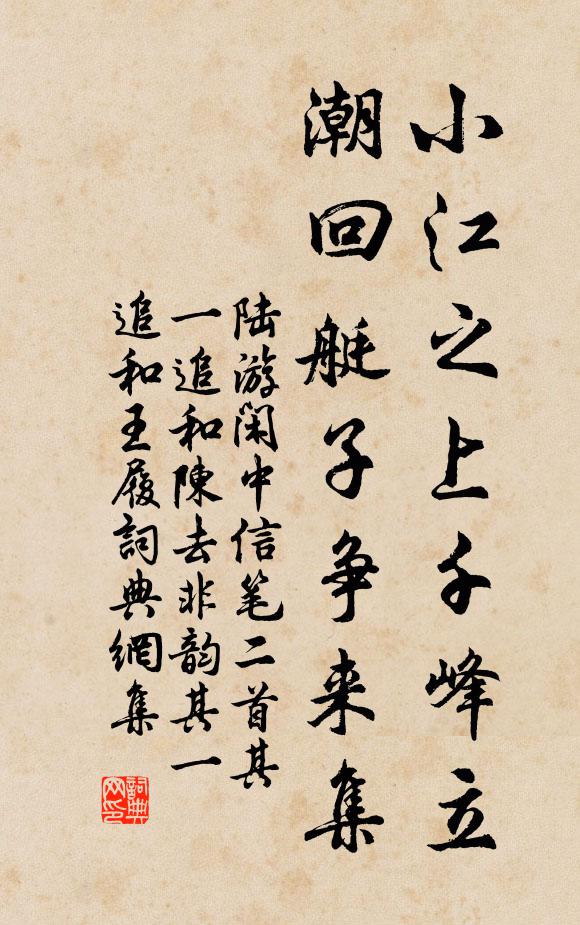 小江之上千峰立
潮回艇子争来集
陆游闲中信笔二首其
一追和陳去非韵其一
追和王履詞典網集
詞典网印